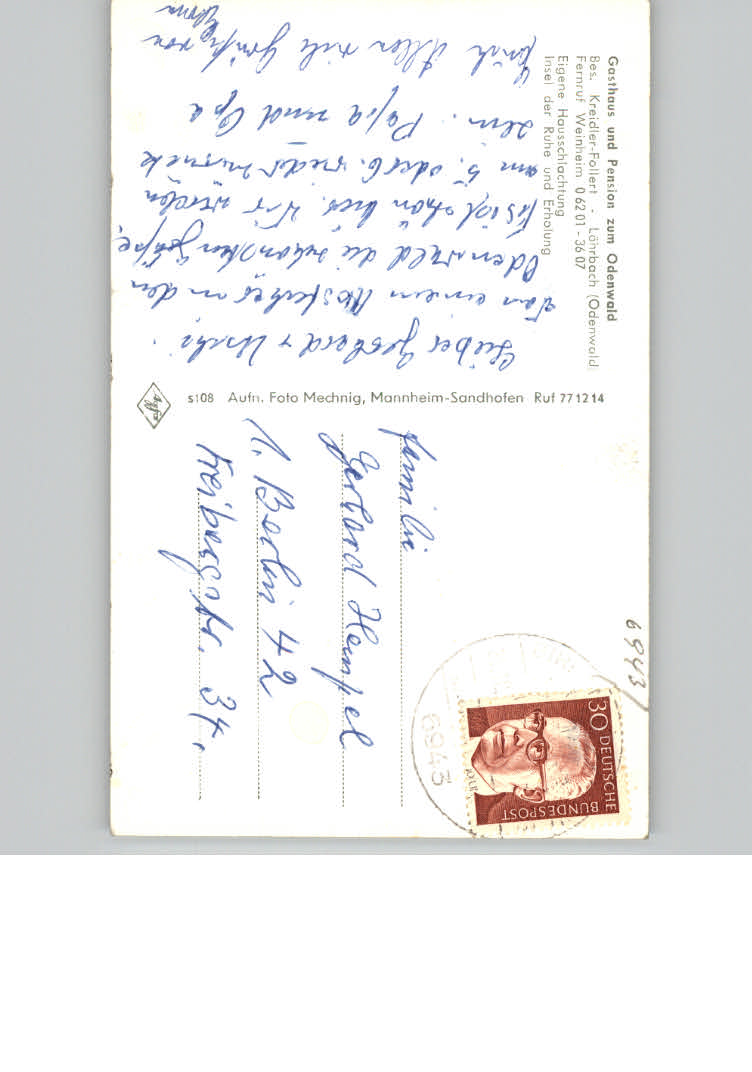 Gasthaus und Pension zum Odenwald
Bes. Kreidler-Follert - Löhrbach (Odenwald)
Fernruf Weinheim 06201-3607
Eigene Hausschlachtung
Insel der Ruhe und Erholung
Lieber Gerhard + Uschi.
Von einem in den
Odenwald die schönsten Grüße,
es ist schon hier. Wir würden
am 5. oder 6. wieder zurück
sein. Papa und Opa
Euch Allen viele Grüße von
Agfa
s108 Aufn. Foto Mechnig, Mannheim-Sandhofen Ruf 771214
Familie
Gerhard Hempel
1. Berlin 42
Freibergstr. 34.
6943
6943
30 DEUTSCHE
BUNDESPOST